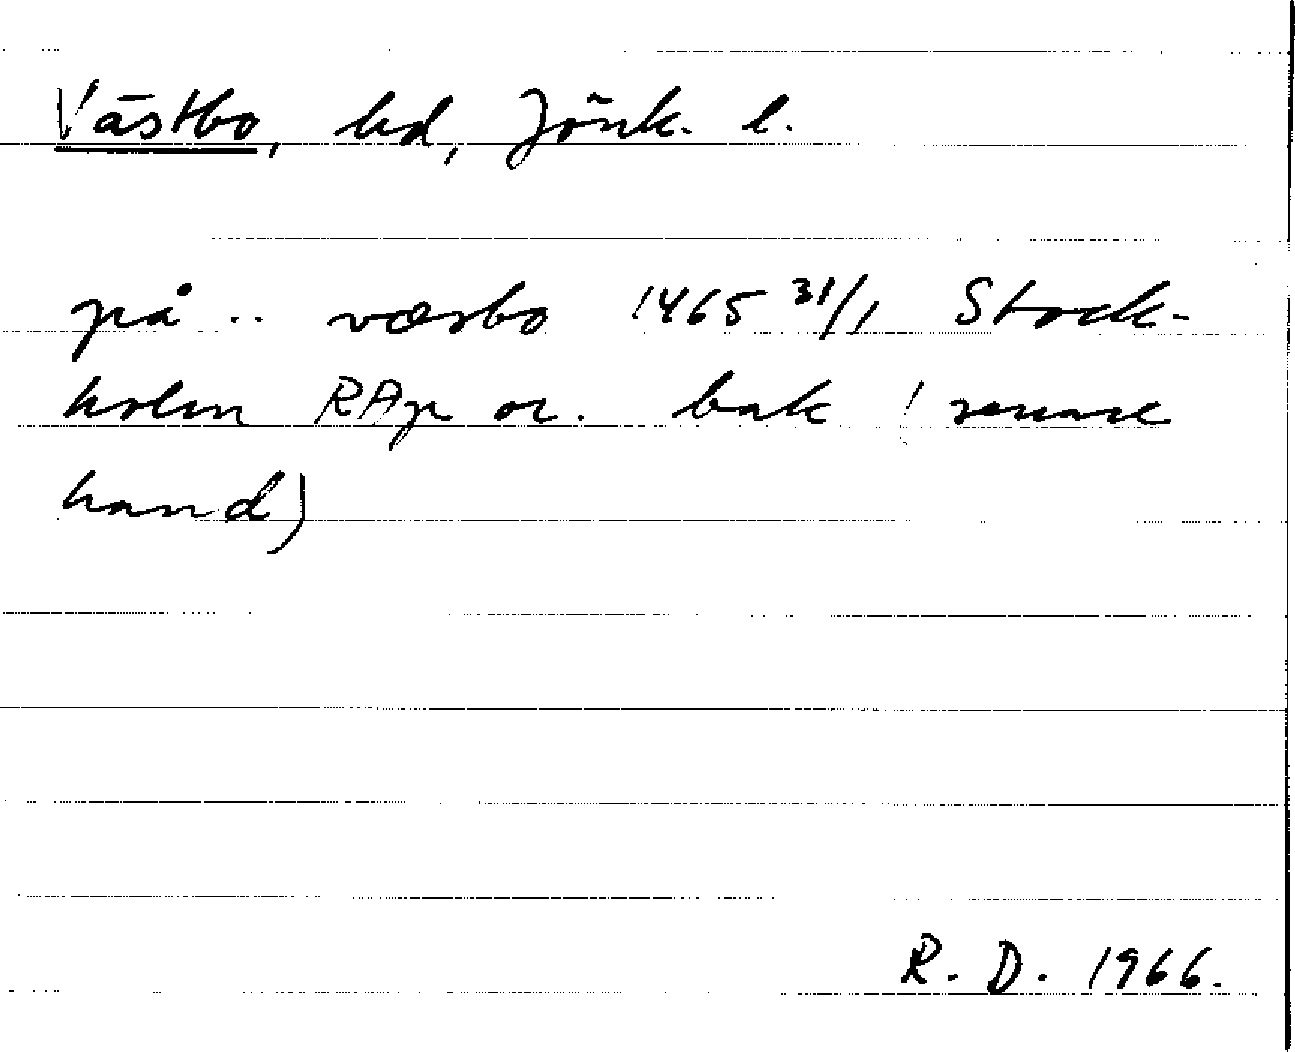 Västbo, hd, Jönk. l.
på .. væsbo 1465 31/1 Stock-
holm RAp or. bak (senare
hand)
R. D. 1966.